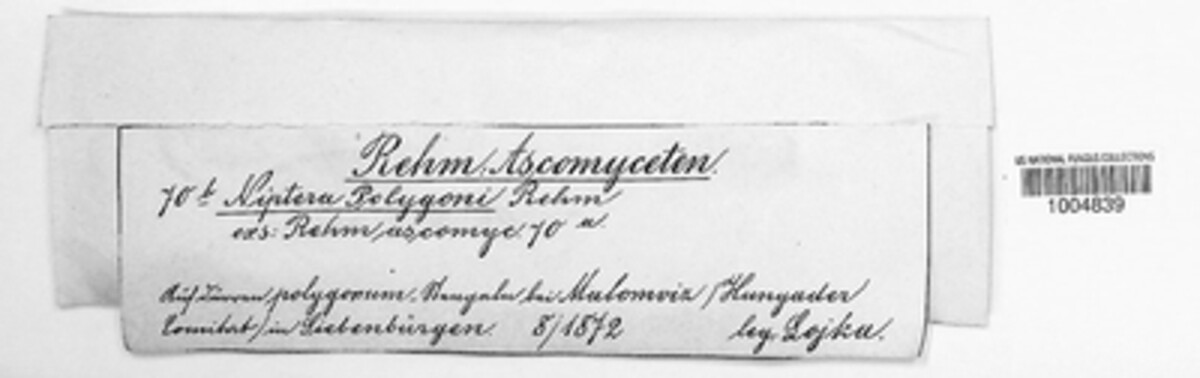 Rehm, Ascomyceten.
70 b Niptera Polygoni Rehm
exs: Rehm, ascomyc. 70 a.
Auf dürren polygonum-Stengeln bei Malomviz (Hunyader
Comitat) in Siebenbürgen. 8/1872 leg. Lojka.
US NATIONAL FUNGUS COLLECTIONS
1004839